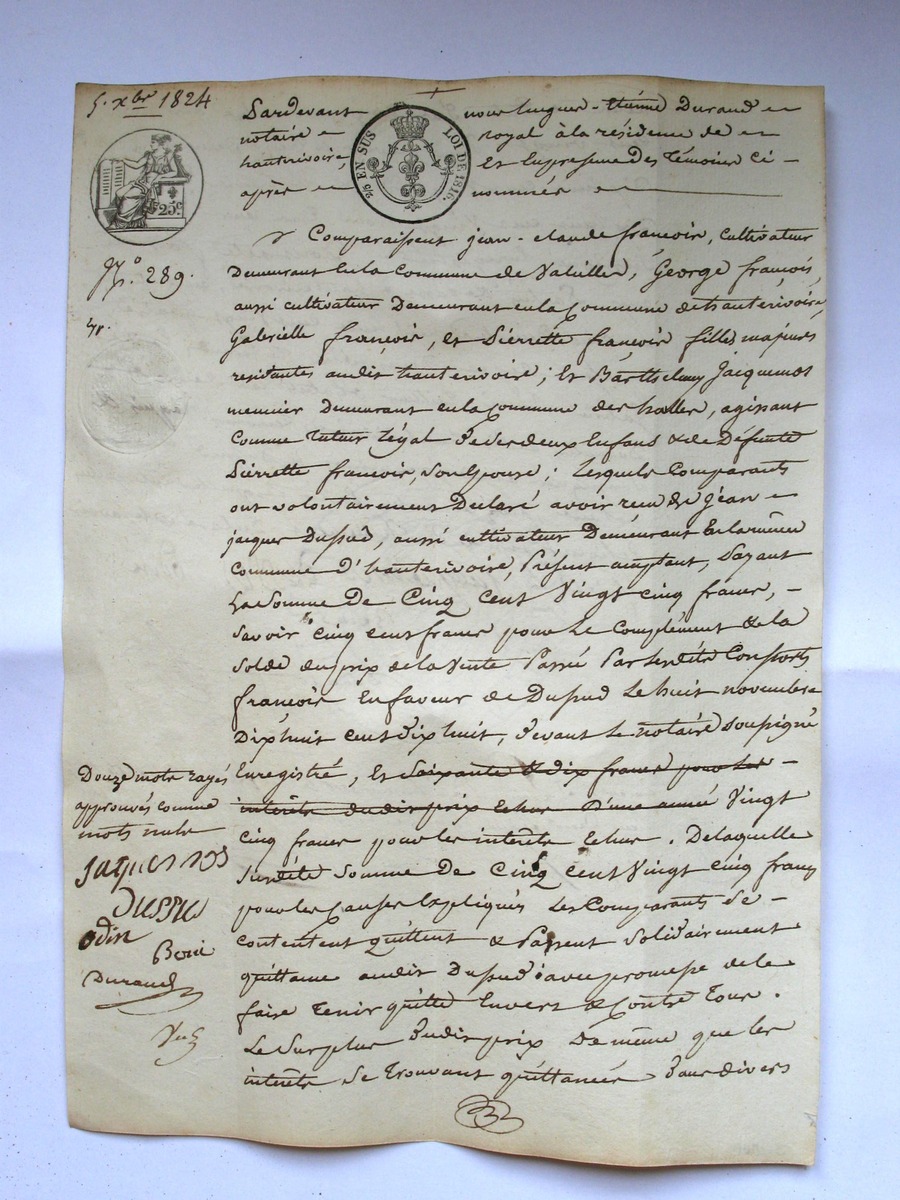 5. xbre 1824
Pardevant nous hugues-Etienne Durand
notaire royal à la résidence de
hauterivoire Et En presence Des Témoins Ci-
après nommés
2/5 EN SUS LOI DE 1816.
25c
No. 289.
Comparaissent jean-claude francois, Cultivateur
Demeurant En la Commune de Valeilles, George françois,
aussi cultivateur Demeurant en la Commune de hauterivoire,
Gabrielle françois, et Pierrette françois filles majeures
residantes audit hauterivoire; Et Barthelemy Jacquemot
meunier demeurant en la Commune des halles, agissant
Comme Tuteur légal De ses deux Enfans & de Défunte
Pierrette francois, son Epouse; Lesquels Comparants
ont volontairement Déclaré avoir recu de jéan
jacques Dupud, aussi cultivateur Demeurant En la même
Commune D'hauterivoire, Présent acceptant, Payant
La Somme De Cinq Cent Vingt cinq francs,
Savoir cinq cent francs pour Le Complément & la
Solde du prix de la Vente Passée Par lesdits Consorts
françois En faveur de Dupud Le huit novembre
Dix huit cent dix huit, Devant Le notaire soussigné
Enregistré, Et Soixante & dix francs pour Les
intérêts dudit prix Echus D'une année Vingt
Cinq francs pour les intérêts Echus. De laquelle
Susdite Somme De Cinq Cent Vingt cinq francs
pour les Causes Expliqués Les Comparants Se
Contentent quittent & Passent Solidairement
quittance audit Dupud avec promesse de le
faire Tenir quitte Envers & Contre Tous.
Le Surplus Dudit prix De même que les
intérêts Se Trouvant quittancés Dans divers
Douze mots rayés
approuvés comme
mots nuls
odin
Durand